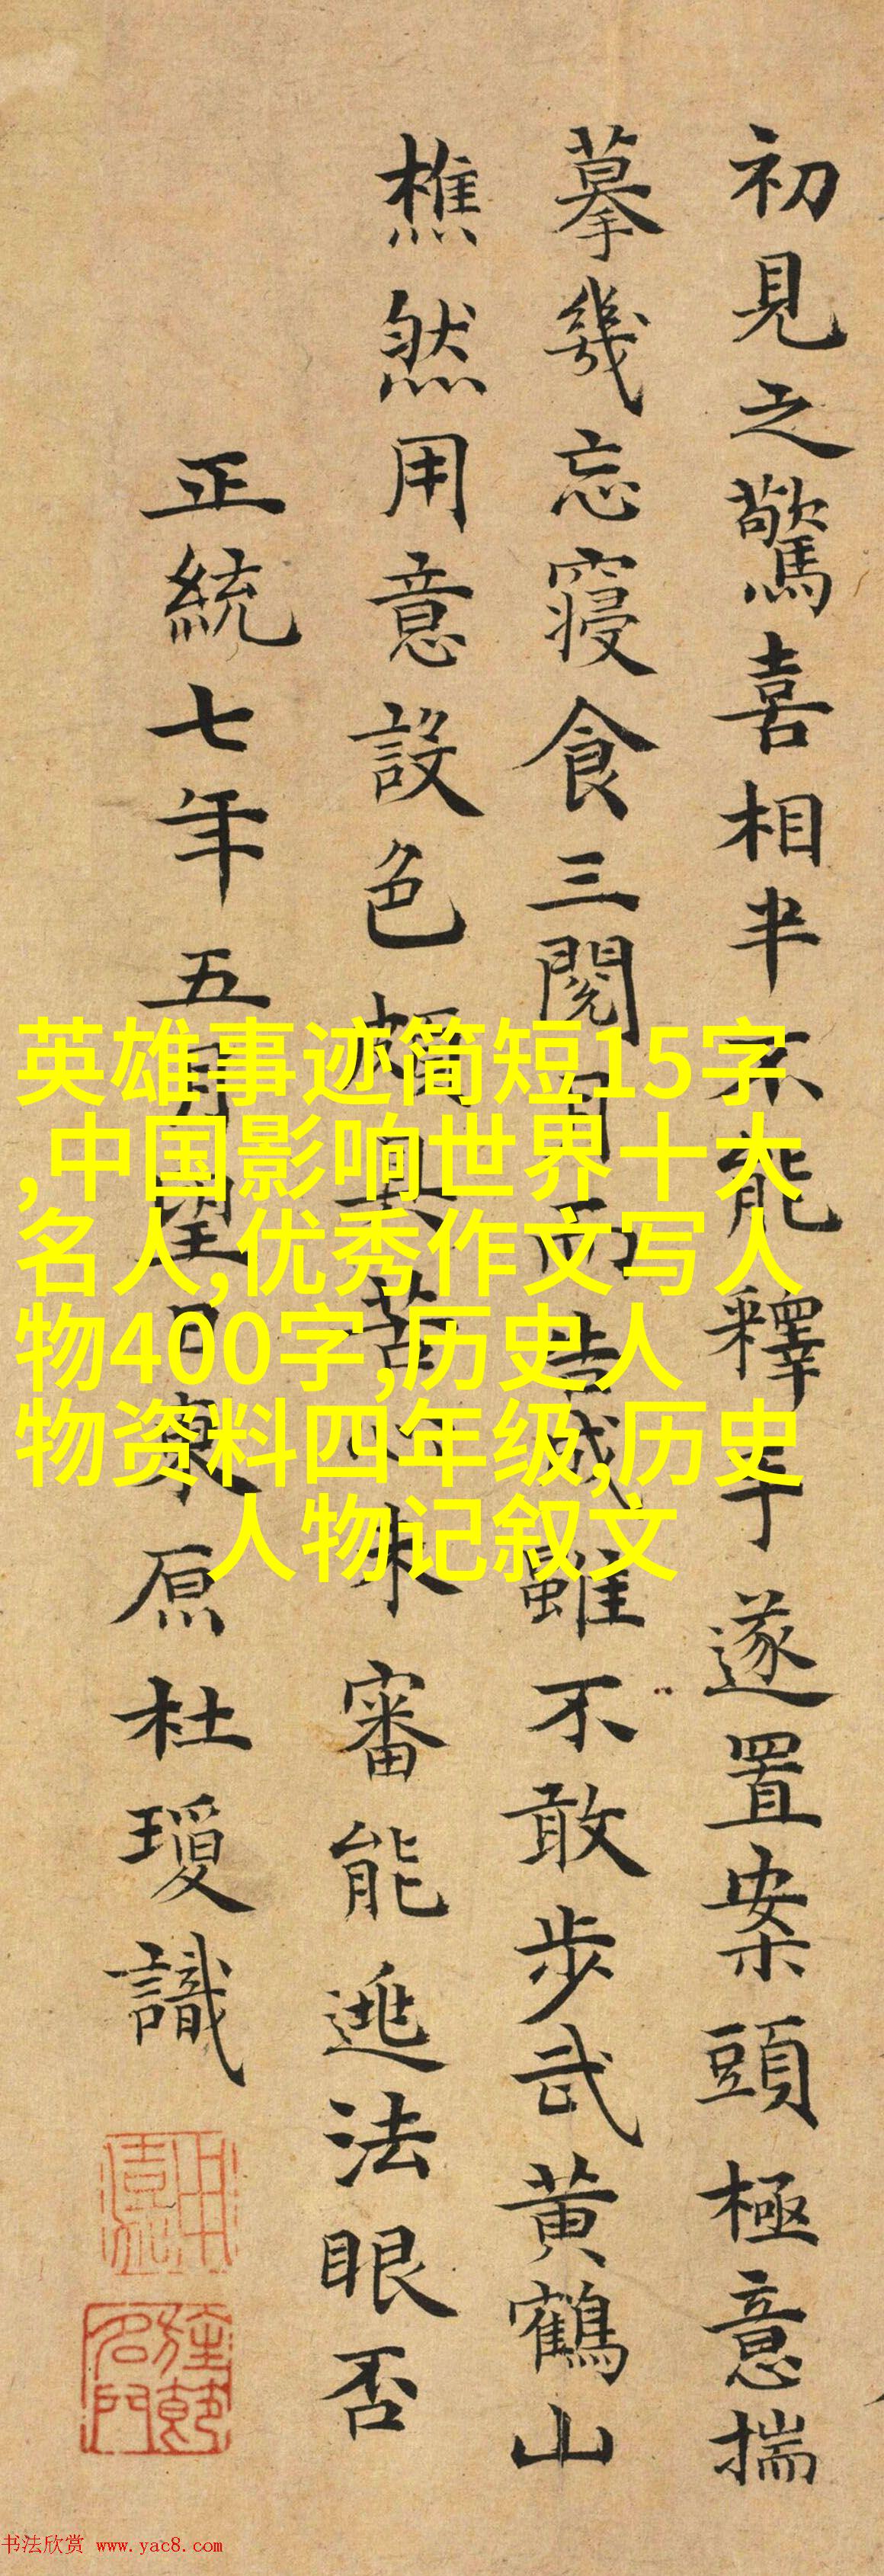 初見之驚喜相半不能釋手遂置案頭極意揣
摹幾忘寝食三閱月而告成雖不敢步武黄鶴山
樵然用意設色頗具苦心未審能逃法眼否
正統七年五月望日東原杜瓊識
英雄事迹简短15字
,中国影响世界十大
名人,优秀作文写人
物400字,历史人
物资料四年级,历史
人物记叙文
书法欣赏 www.yac8.com